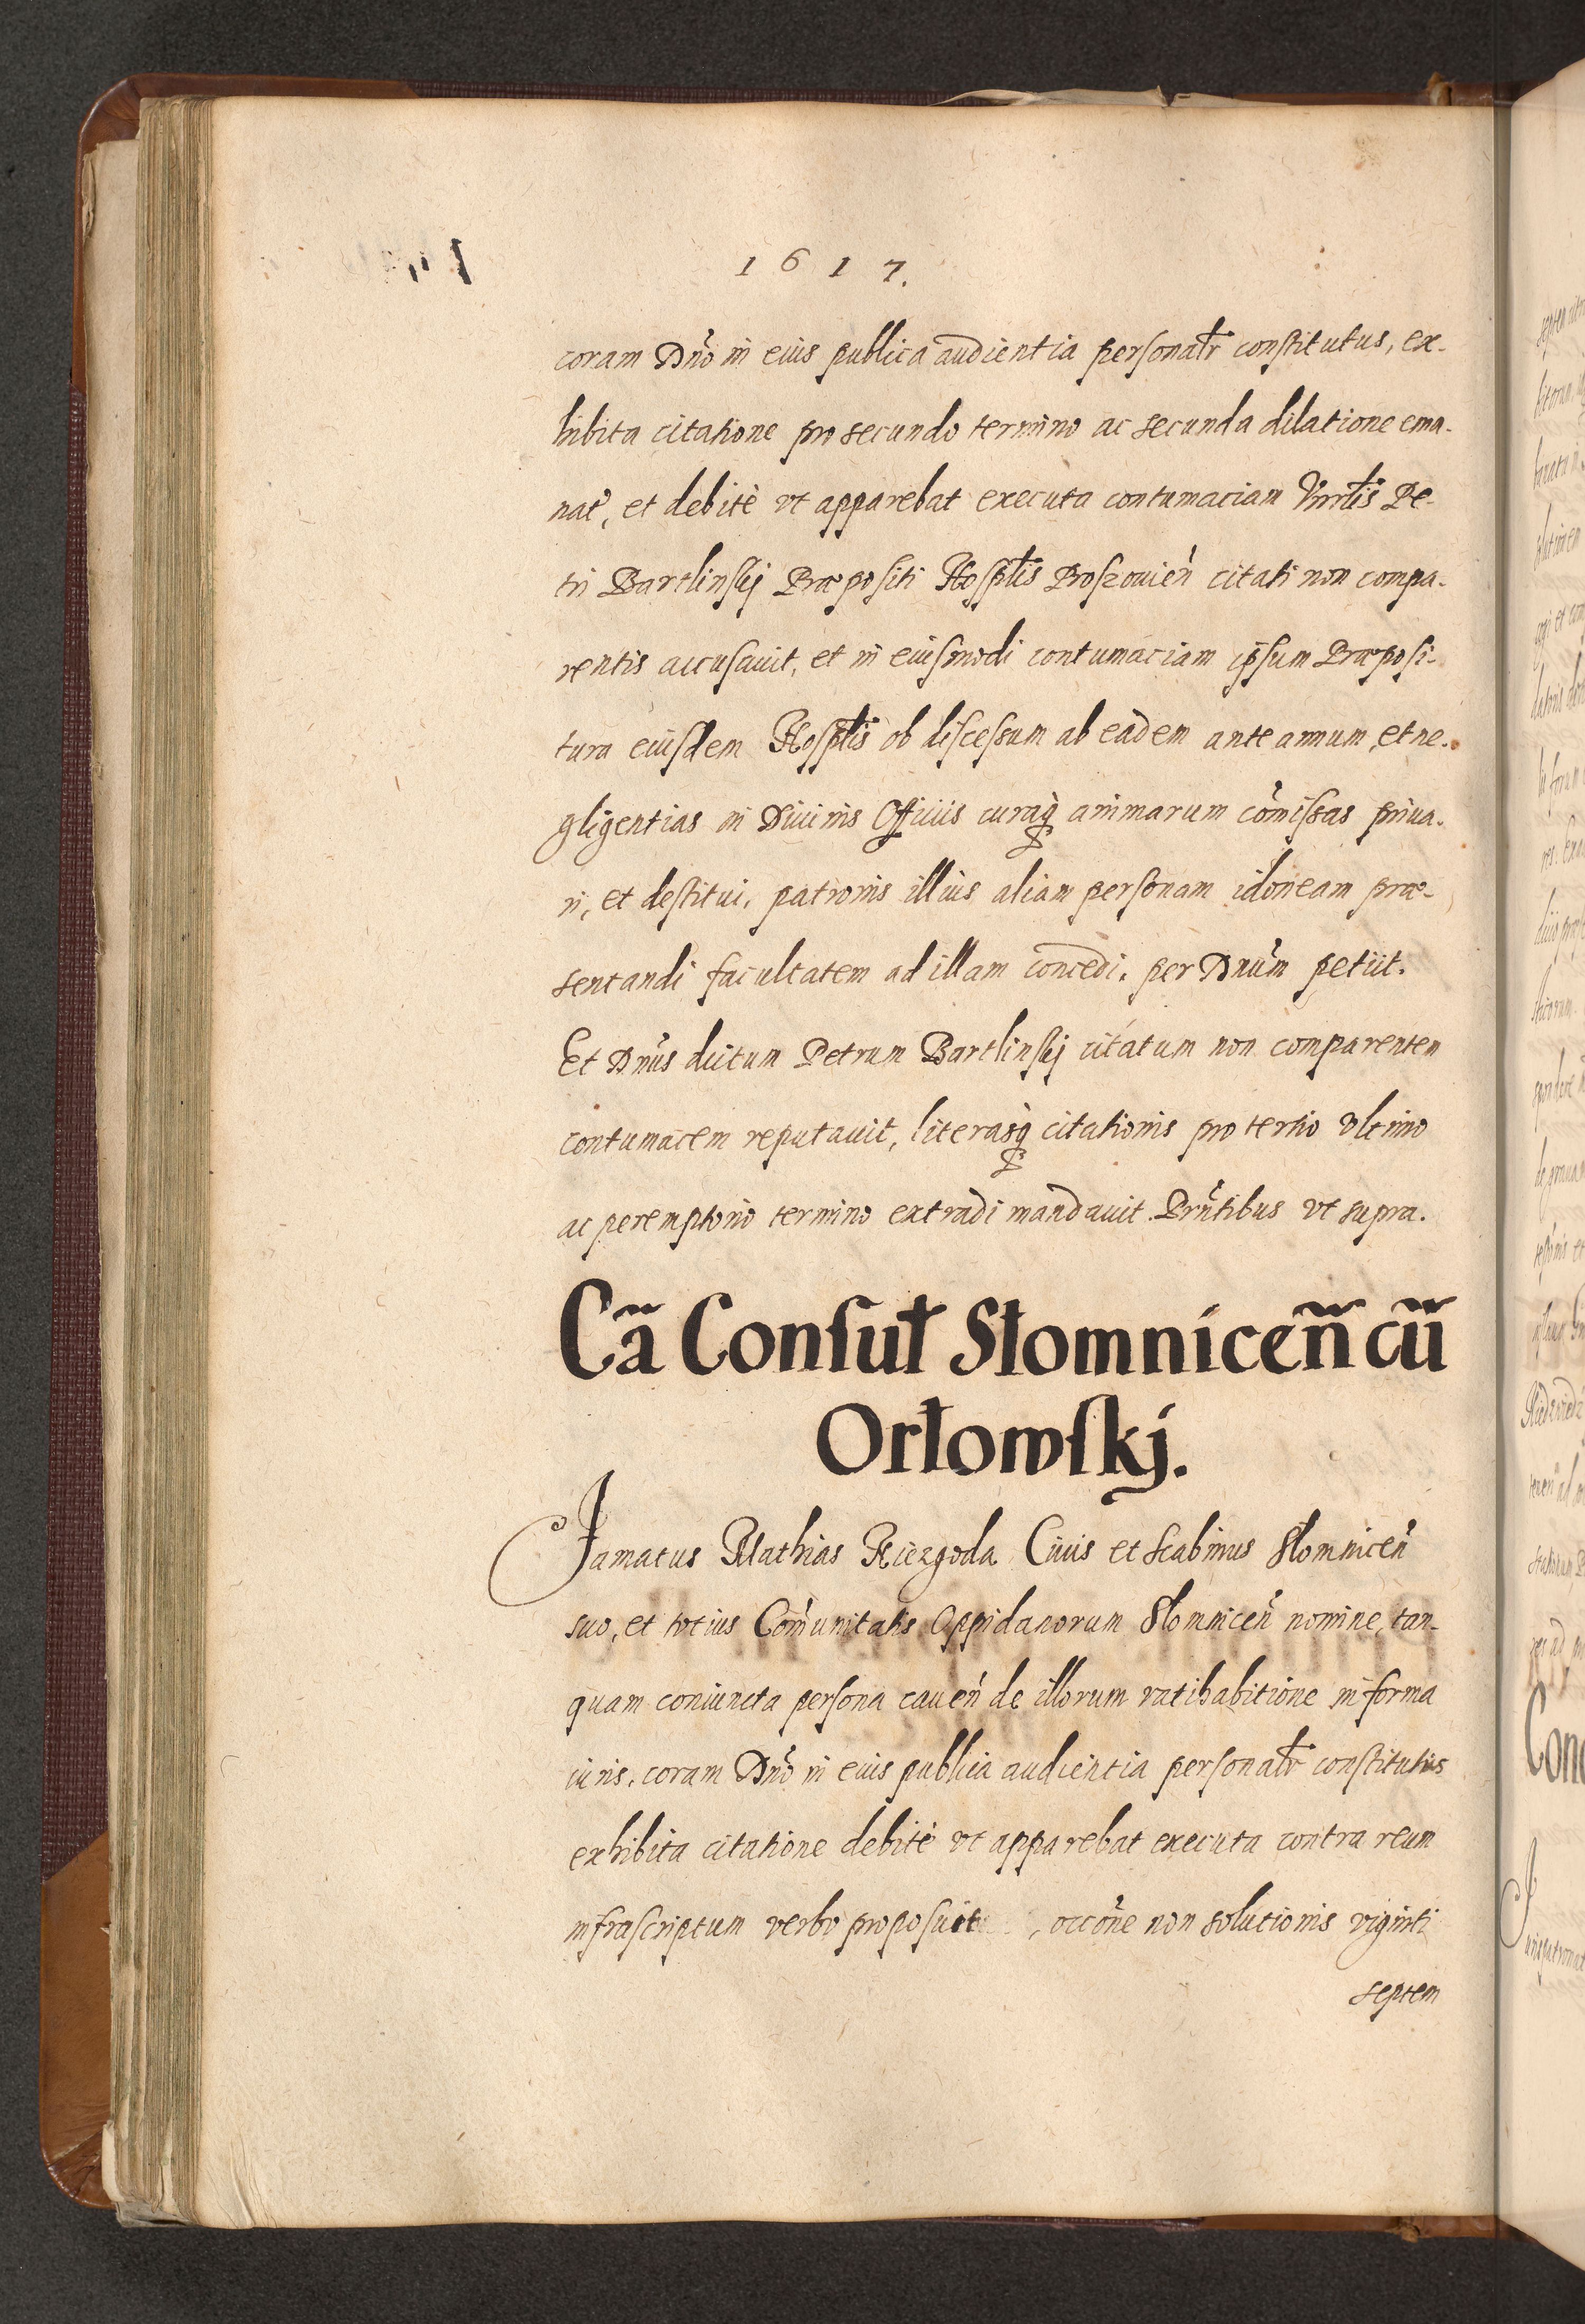 1617.
coram Dnō in eius publica audientia personalr̄ constitutus, ex-
hibita citatione pro secundo termino ac secunda dilatione ema-
nat', et debitè vt apparebat executa contumaciam Vnrlis Pe-
tri Bartlinskj Præpositi Hospłis Proszouien̄ citati non compa-
rentis accusauit, et in eiusmodi contumaciam ipsum Præposi-
tura eiusdem Hospłis ob discessum ab eadem ante annum, et ne-
gligentias in Diuinis Officiis curaq; animarum com̄issas priua-
ri, et destitui, patronis illius aliam personam idoneam præ-
sentandi facultatem ad illam concedi, per Dnūm petiit.
Et Dnūs dictum Petrum Bartlinskj citatum non comparentem
contumacem reputauit, literasq; citationis pro tertio vltimo
ac peremptorio termino extradi mandauit. Prn̄tibus vt supra.
Cā Consuł Słomnicen̄ cū
Orłowskj.
Famatus Mathias Niezgoda Ciuis et scabinus Słomnicen̄
suo, et totius Com̄unitatis Oppidanorum Słomnicen̄ nomine, tan-
quam coniuncta persona cauen̄ de illorum ratihabitione in forma
iuris, coram Dnō in eius publica audientia personalr̄ constitutus
exhibita citatione debitè vt apparebat executa contra reum
infrascriptum verbo proposuit, occōne non solutionis viginti
septem